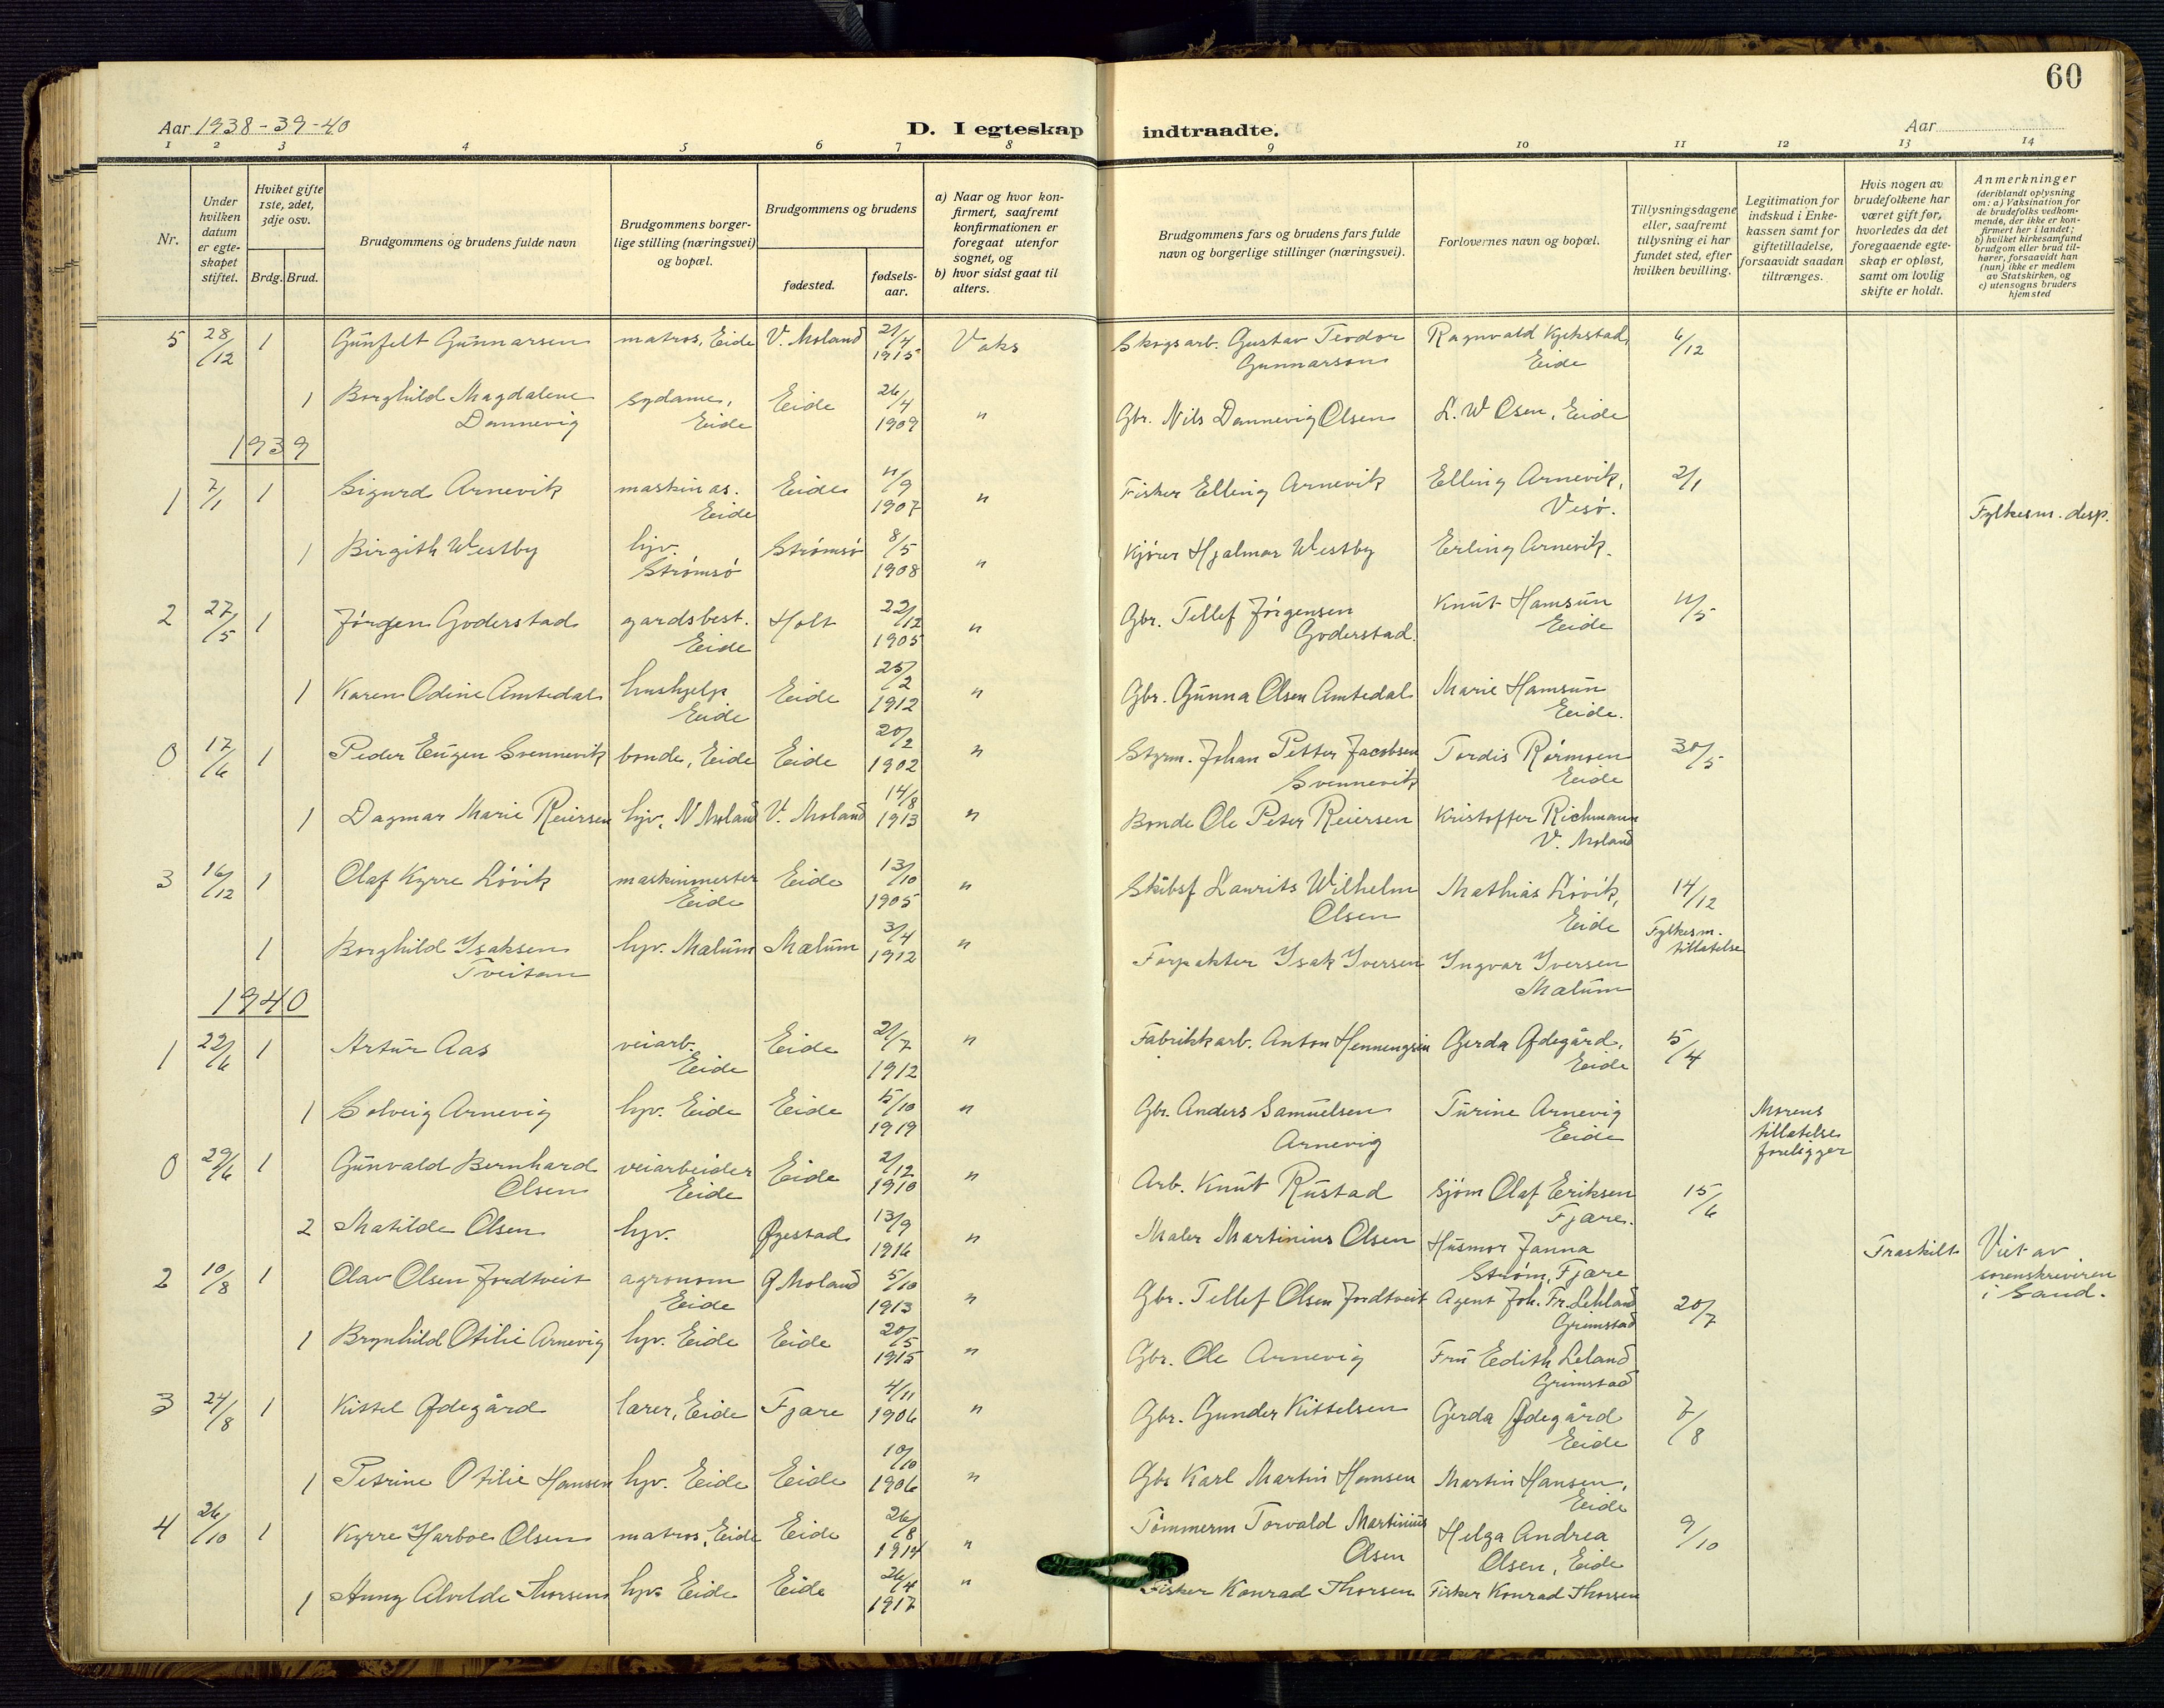 60
Aar 1938-39-40
D. I egteskap indtraadte.
Aar
1 2 3 4 5 6 7 8 9 10 11 12 13 14
Nr.
Under hvilken datum er egteskapet stiftet.
Hviket gifte 1ste, 2det, 3dje osv.
Brdg. Brud.
Brudgommens og brudens fulde navn
Brudgommens borgerlige stilling (næringsvei) og bopæl.
Brudgommens og brudens
fødested.
fødselsaar.
a) Naar og hvor konfirmert, saafremt konfirmationen er foregaat utenfor sognet, og
b) hvor sidst gaat til alters.
Brudgommens fars og brudens fars fulde navn og borgerlige stillinger (næringsvei).
Forlovernes navn og bopæl.
Tillysningsdagene eller, saafremt tillysning ei har fundet sted, efter hvilken bevilling.
Legitimation for indskud i Enkekassen samt for giftetilladelse, forsaavidt saadan tiltrænges.
Hvis nogen av brudefolkene har været gift før, hvorledes da det foregaaende egteskap er opløst, samt om lovlig skifte er holdt.
Anmerkninger
(deriblandt oplysning om: a) Vaksination for de brudefolks vedkommende, der ikke er konfirmert her i landet; b) hvilket kirkesamfund brudgom eller brud tilhører, forsaavidt han (hun) ikke er medlem av Statskirken, og c) utensogns bruders hjemsted
5 28/12 1 Gunfelt Gunnarsen matros, Eide V. Moland 21/4 1915 Vaks Skogsarb. Gustav Teodor Gunnarson Ragnvald Kjekstad, Eide 6/12
1 Borghild Magdalene Dannevig sydame, Eide Eide 26/4 1909 " Gbr. Nils Dannevig Olsen L. W Olsen, Eide
1939
1 7/1 1 Sigurd Arnevik maskinas. Eide Eide 11/9 1907 " Fisker Elling Arnevik Elling Arnevik, Vesø. 2/1 Fylkesm. disp.
1 Birgith Westby hjv. Strømsø Strømsø 8/5 1908 " Kjører Hjalmar Westby Erling Arnevik.
2 27/5 1 Jørgen Goderstad gardsbest. Eide Holt 22/12 1905 " Gbr. Tellef Jørgensen Goderstad. Knut Hamsun Eide 11/5
1 Karen Odine Amtedal hushjelp Eide Eide 25/2 1912 " Gbr. Gunna Olsen Amtedal Marie Hamsun Eide.
0 17/6 1 Peder Eugen Svennevik bonde, Eide Eide 20/2 1902 " Styrm. Johan Petter Jacobsen Svennevik Tordis Rørmoen Eide 30/5
1 Dagmar Marie Reiersen hjv, V Moland V. Moland 14/8 1913 " Bonde Ole Peter Reiersen Kristoffer Richmann V. Moland
3 16/12 1 Olaf Kyrre Løvik maskinmester Eide Eide 13/10 1905 " Skibsf Laurits Wilhelm Olsen Mathias Løvik, Eide 14/12 Fylkesm. tillatelse
1 Borghild Isaksen Tveitan hjv. Mælum Mælum 3/4 1912 " Forpakter Isak Iversen Ingvar Iversen Mælum
1940
1 22/6 1 Artur Aas veiarb. Eide Eide 21/7 1912 " Fabrikkarb. Anton Hennengsen Gerda Ødegård, Eide 5/4
1 Solveig Arnevig hjv. Eide Eide 5/10 1919 " Gbr. Anders Samuelsen Arnevig Turine Arnevig Eide Morens tillatelse foreligger
0 29/6 1 Gunvald Bernhard Olsen veiarbeider Eide Eide 2/12 1910 " Arb. Knut Rustad Sjøm Olaf Eriksen Fjære. 15/6
2 Matilde Olsen hjv. Øyestad 13/9 1916 " Maler Martinius Olsen Husmor Janna Strøm, Fjære Fraskilt Viet av sorenskriveren i Sand.
2 10/8 1 Olav Olsen Jordtveit agronom Eide Ø Moland 5/10 1913 " Gbr. Tellef Olsen Jordtveit Agent Joh. Fr. Lehland Grimstad 20/7
1 Brynhild Otilie Arnevig hjv. Eide Eide 20/5 1915 " Gbr. Ole Arnevig Fru Edith Leland Grimstad
3 24/8 1 Kittel Ødegård lærer, Eide Fjære 4/11 1906 " Gbr. Gunder Kittelsen Gerda Ødegård Eide 7/8
1 Petrine Otilie Hansen hjv. Eide Eide 10/10 1906 " Gbr Karl Martin Hansen Martin Hansen, Eide
4 26/10 1 Kyrre Harboe Olsen matros, Eide Eide 26/8 1914 " Tømmerm Torvald Martinius Olsen Helga Andrea Olsen, Eide 9/10
1 Anny Alvilde Thorsen hjv Eide Eide 26/4 1917 " Fisker Konrad Thorsen Fisker Konrad Thorsen